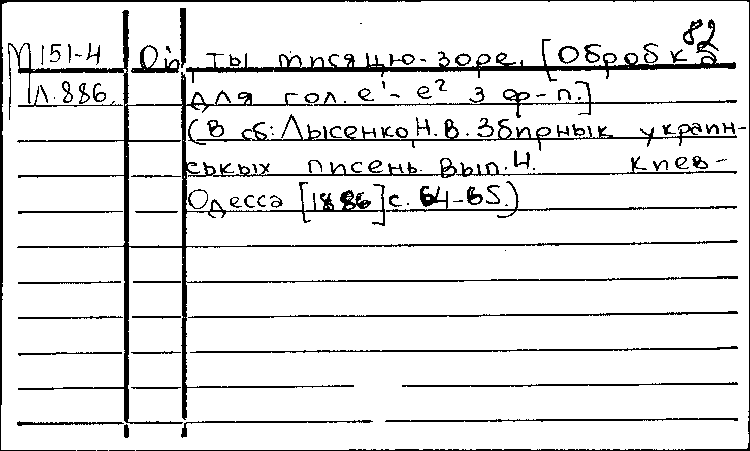 82
М 151-4 Ой, ты мисяцю-зоре. [Обробка
Л.886. для гол. e¹- e² з ф-п.]
(В сб: Лысенко, Н. В. Збирнык украин-
ськых писень. Вып. 4. Киев-
Одесса [1886] с. 64-65.)